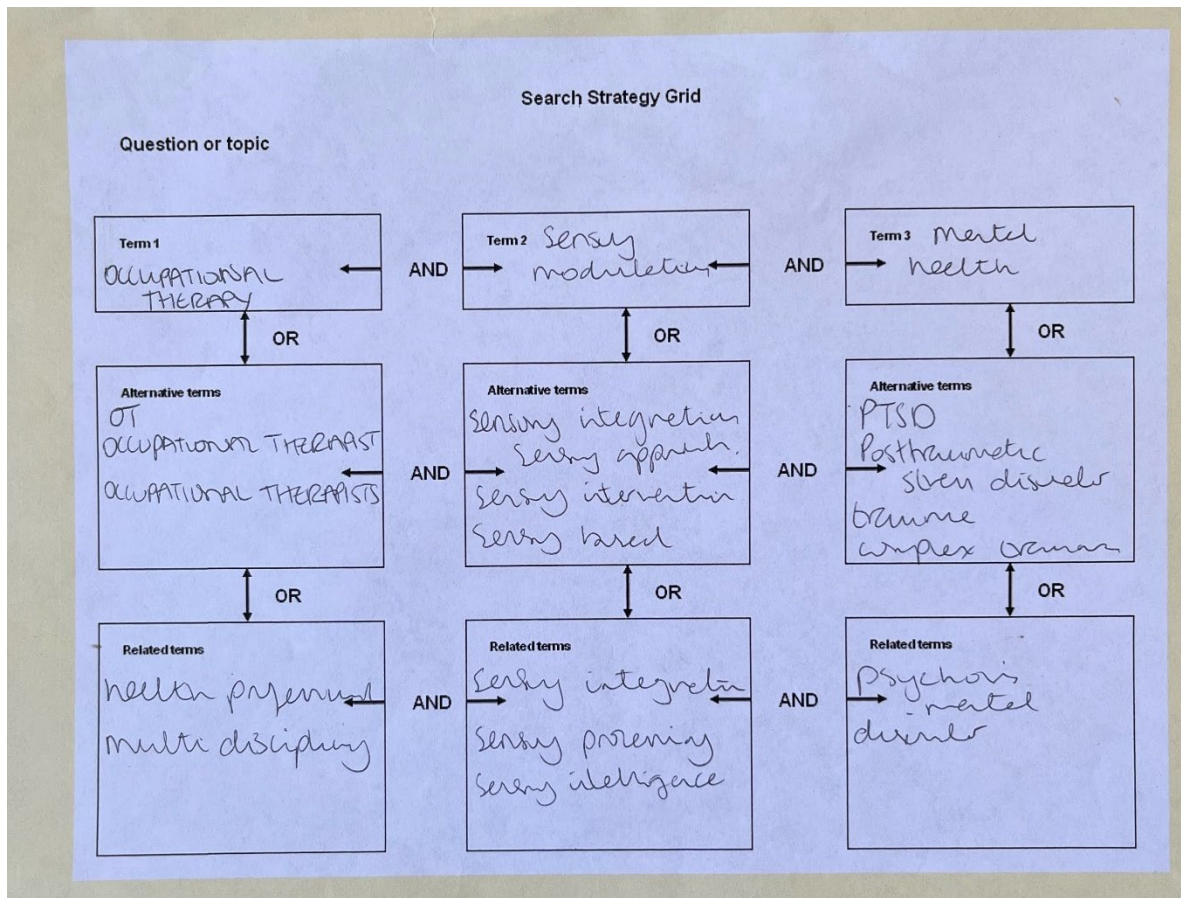 Search Strategy Grid
Question or topic
Term 1
OCCUPATIONAL
THERAPY
AND
Term 2 Sensory
modulation
AND
Term 3 Mental
health
OR
OR
OR
Alternative terms
OT
OCCUPATIONAL THERAPIST
OCCUPATIONAL THERAPISTS
AND
Alternative terms
Sensory integration
Sensory approach.
Sensory intervention
Sensory based
AND
Alternative terms
PTSD
Posttraumatic
stress disorder
trauma
complex trauma
OR
OR
OR
Related terms
health professional
multi disciplinary
AND
Related terms
Sensory integration
Sensory processing
Sensory intelligence
AND
Related terms
psychosis
mental
disorder